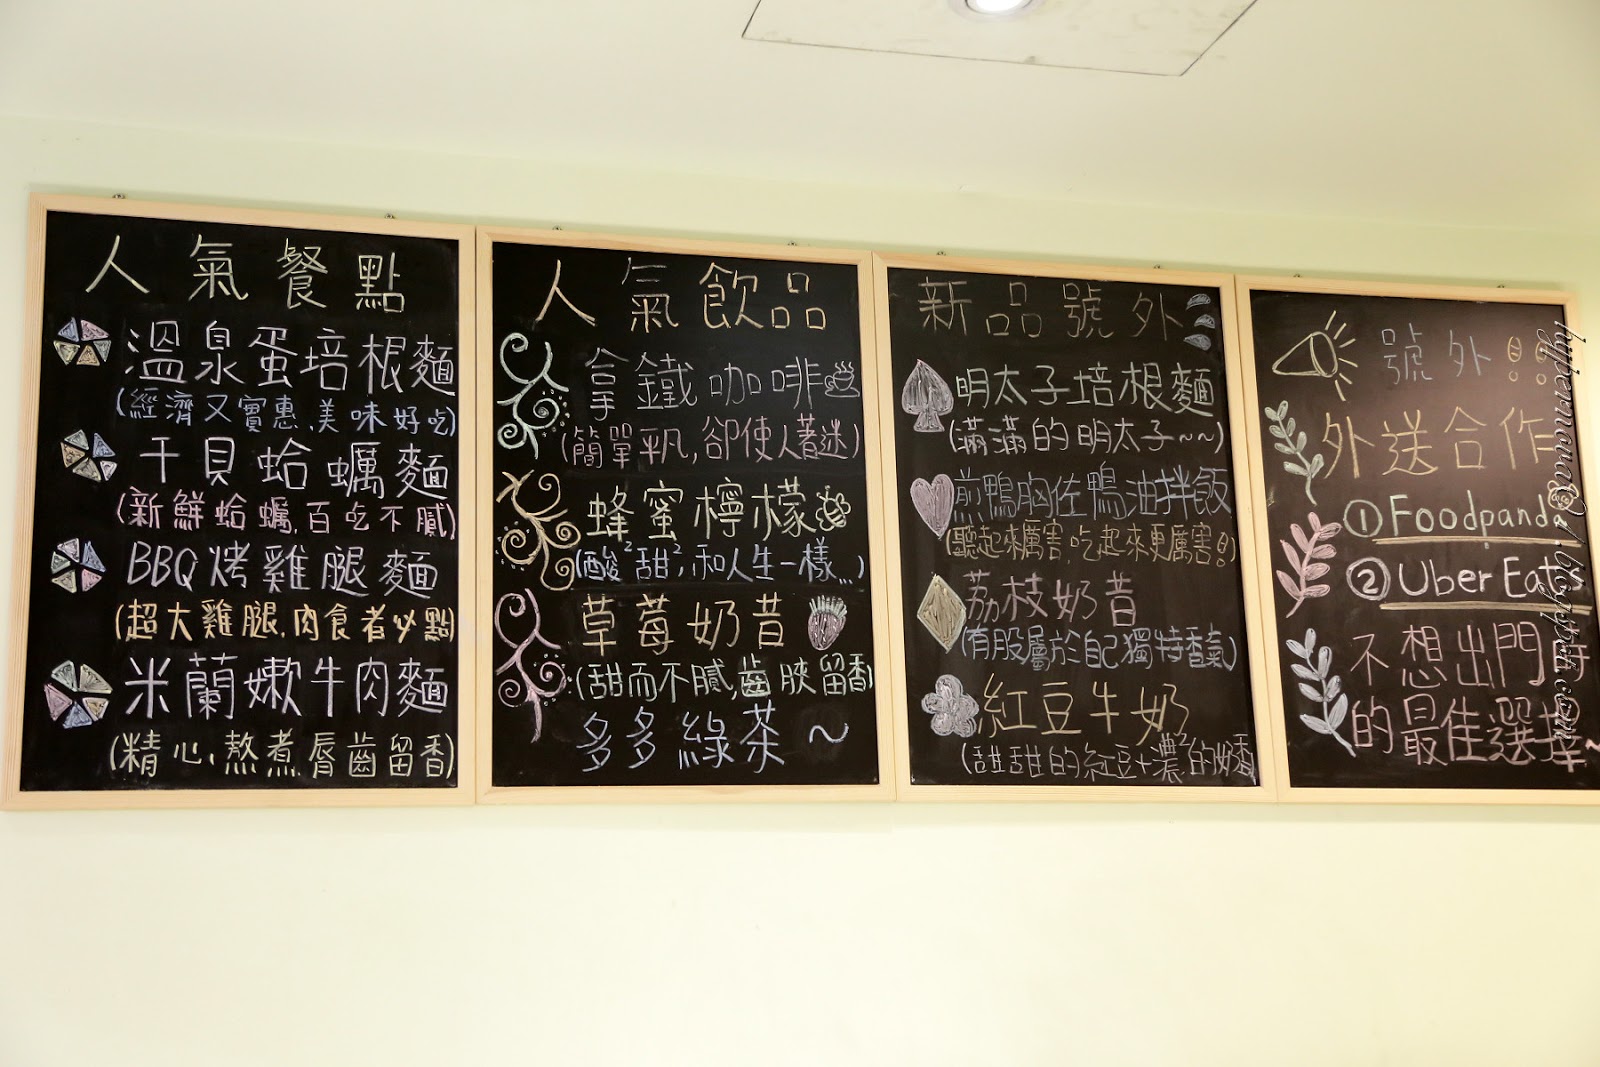 人氣餐點
溫泉蛋培根麵
(經濟又實惠,美味好吃)
干貝蛤蠣麵
(新鮮蛤蠣,百吃不膩)
BBQ烤雞腿麵
(超大雞腿,肉食者必點)
米蘭嫩牛肉麵
(精心熬煮,唇齒留香)
人氣飲品
拿鐵咖啡
(簡單平凡,卻使人著迷)
蜂蜜檸檬
(酸²甜²,和人生一樣...)
草莓奶昔
(甜而不膩,齒頰留香)
多多綠茶~
新品號外
明太子培根麵
(滿滿的明太子~~)
煎鴨胸佐鴨油拌飯
(聽起來厲害,吃起來更厲害!)
荔枝奶昔
(有股屬於自己獨特香氣)
紅豆牛奶
(甜甜的紅豆+濃²的奶香)
號外!!
外送合作
①Foodpanda
②Uber Eats
不想出門時
的最佳選擇~